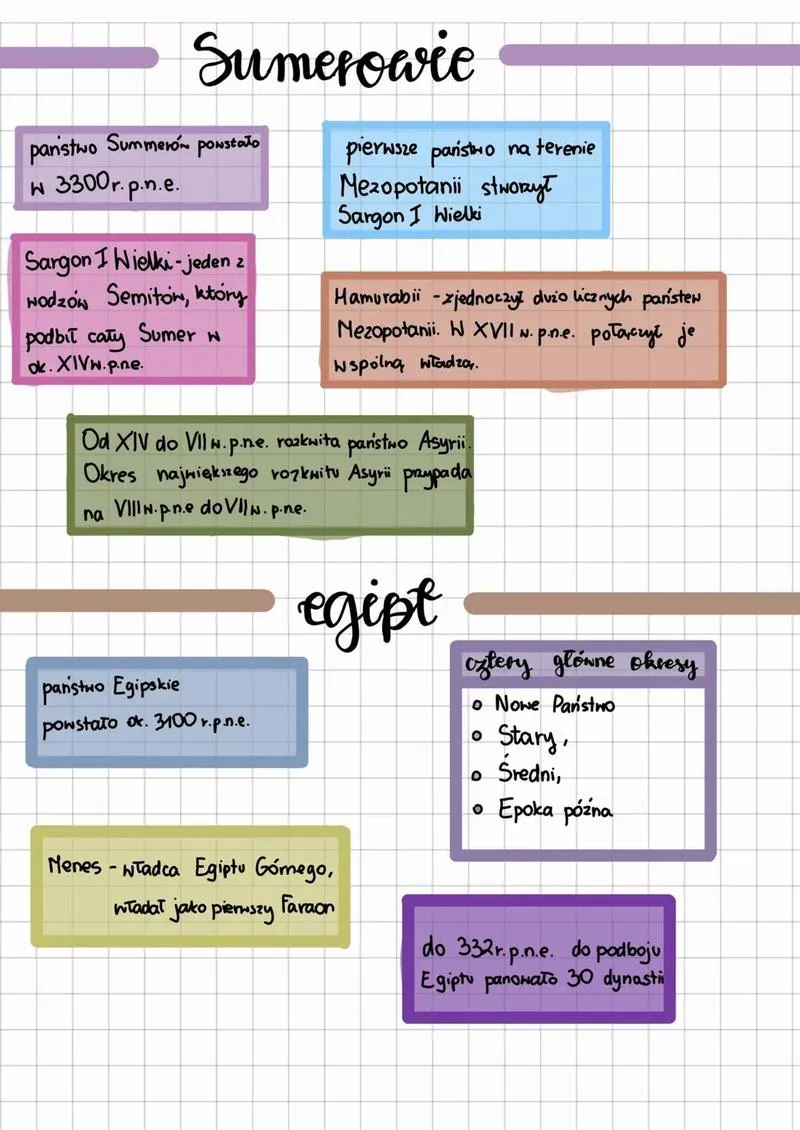 Sumerowie
państwo Summerów powstało
w 3300r. p.n.e.
pierwsze państwo na terenie
Mezopotanii stworzył
Sargon I Wielki
Sargon I Wielki - jeden z
wodzów Semitów, który
podbił cały Sumer w
ok. XIV w. p.n.e.
Hamurabii - zjednoczył dużo licznych państew
Mezopotanii. W XVII w. p.n.e. połączył je
wspólną władzą.
Od XIV do VII w. p.n.e. rozkwita państwo Asyrii.
Okres największego rozkwitu Asyrii przypada
na VIII w. p.n.e do VII w. p.n.e.
egipt
państwo Egipskie
powstało ok. 3100 r. p.n.e.
cztery główne okresy
Nowe Państwo
Stary,
Średni,
Epoka późna
Menes - władca Egiptu Górnego,
władał jako pierwszy Faraon
do 332r. p.n.e. do podboju
Egiptu panowało 30 dynastii